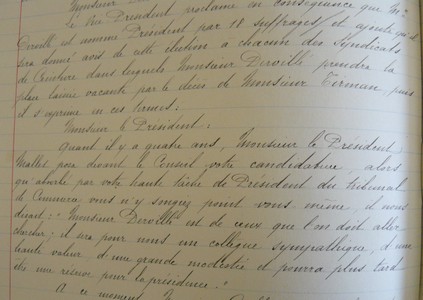 Monsieur
le Vice Président proclame en conséquence que Mr
Derville est nommé Président par 18 suffrages, et ajoute qu'il
sera donné avis de cette élection à chacun des Syndicats
de Ceinture dans lesquels Monsieur Derville prendra la
place laissée vacante par le décès de Monsieur Tirman, puis
il s'exprime en ces termes :
Monsieur le Président,
Quand il y a quatre ans, Monsieur le Président
Mallet posa devant le Conseil votre candidature, alors
qu'absorbé par votre haute tâche de Président du Tribunal
de Commerce vous n'y songiez point vous-même, il nous
disait : "Monsieur Derville est de ceux que l'on doit aller
chercher ; il sera pour nous un collègue sympathique, d'une
haute valeur, d'une grande modestie et pourra plus tard
être une réserve pour la présidence."
A ce moment,